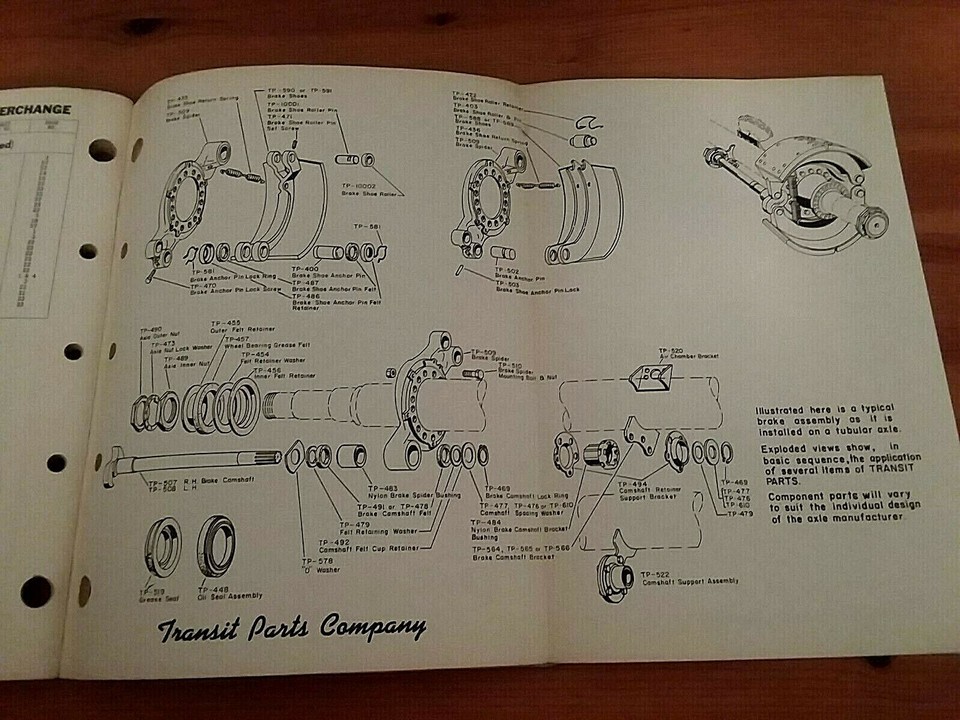 ERCHANGE
Brake Shoe Return Spring
Brake Spider
TP-590 or TP-591
Brake Shoes
TP-10001
Brake Shoe Roller Pin
TP-471
Brake Shoe Roller Pin
Set Screw
TP-10002
Brake Shoe Roller
TP-581
TP-581
Brake Anchor Pin Lock Ring
TP-470
Brake Anchor Pin Lock Screw
TP-400
Brake Shoe Anchor Pin
TP-487
Brake Shoe Anchor Pin Felt
TP-486
Brake Shoe Anchor Pin Felt
Retainer
Brake Shoe Roller Retainer
TP-403
Brake Shoe Roller & Pin
Brake Shoes
TP-436
Brake Shoe Return Spring
TP-509
Brake Spider
TP-502
Brake Anchor Pin
TP-503
Brake Shoe Anchor Pin Lock
TP-490
Axle Outer Nut
TP-473
Axle Nut Lock Washer
TP-489
Axle Inner Nut
TP-455
Outer Felt Retainer
TP-457
Wheel Bearing Grease Felt
TP-454
Felt Retainer Washer
TP-456
Inner Felt Retainer
TP-509
Brake Spider
TP-510
Brake Spider
Mounting Bolt & Nut
TP-520
Air Chamber Bracket
TP-507 R.H. Brake Camshaft
TP-508 L.H.
TP-483
Nylon Brake Spider Bushing
TP-491 or TP-478
Brake Camshaft Felt
TP-479
Felt Retaining Washer
TP-492
Camshaft Felt Cup Retainer
TP-578
"D" Washer
TP-469
Brake Camshaft Lock Ring
TP-477, TP-476 or TP-610
Camshaft Spacing Washer
TP-484
Nylon Brake Camshaft Bracket
Bushing
TP-564, TP-565 or TP-566
Brake Camshaft Bracket
TP-494
Camshaft Retainer
Support Bracket
TP-469
TP-477
TP-476
TP-610
TP-479
TP-522
Camshaft Support Assembly
TP-519
Grease Seal
TP-448
Oil Seal Assembly
Illustrated here is a typical
brake assembly as it is
installed on a tubular axle.
Exploded views show, in
basic sequence, the application
of several items of TRANSIT
PARTS.
Component parts will vary
to suit the individual design
of the axle manufacturer.
Transit Parts Company